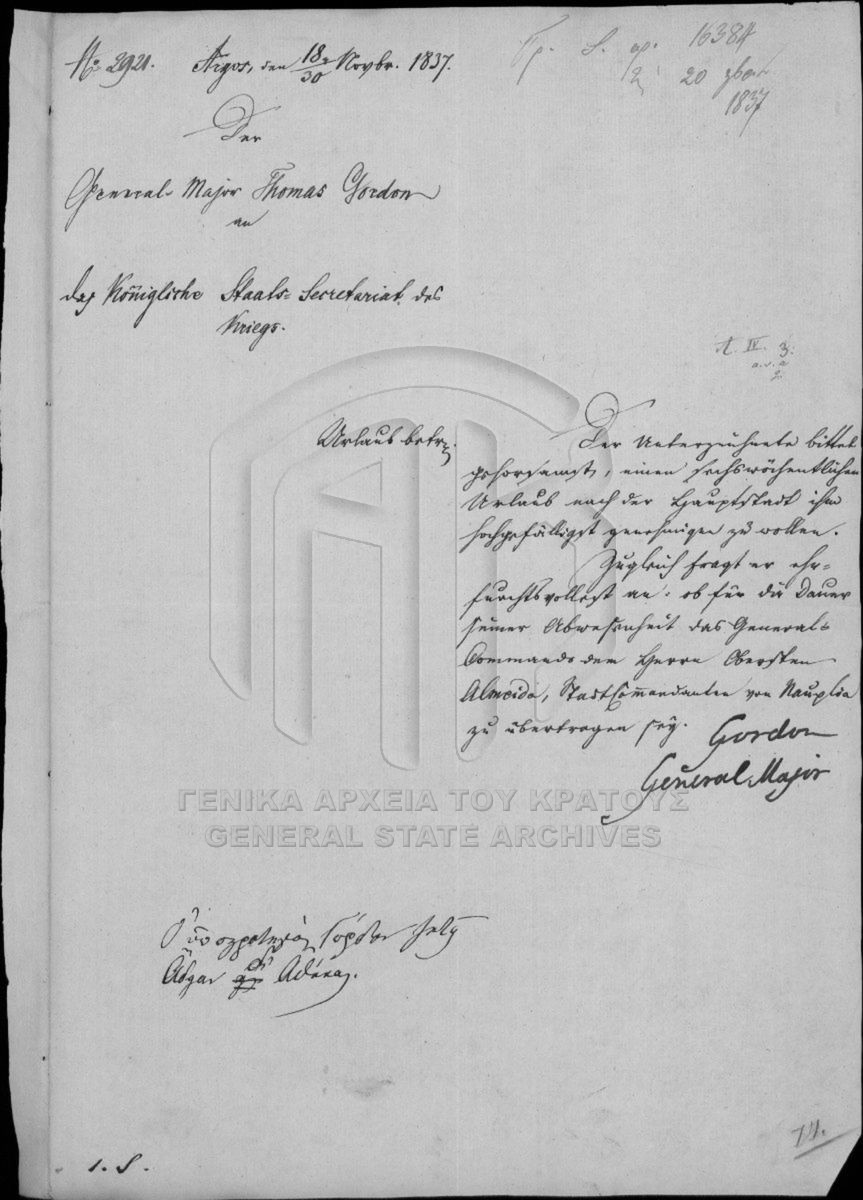 No 2921. Argos, den 18/30 Novbr. 1837.
16384
20 9βρ
1837
Der
General-Major Thomas Gordon
an
das Königliche Staats-Secretariat des
Kriegs.
A. IV. 3.
Urlaub betr.
Der Unterzeichnete bittet
gehorsamst, einen sechswöchentlichen
Urlaub nach der Hauptstadt ihm
hochgefälligst genehmigen zu wollen.
Zugleich fragt er ehr-
furchtsvollest an, ob für die Dauer
seiner Abwesenheit das General-
Commando dem Herrn Obersten
Almeida, Stadtcommandanten von Nauplia
zu übertragen sey.
Gordon
General Major
ΓΕΝΙΚΑ ΑΡΧΕΙΑ ΤΟΥ ΚΡΑΤΟΥΣ
GENERAL STATE ARCHIVES
Ὁ ὑποστράτηγος Γόρδων ζητεῖ
ἄδειαν δι' Ἀθήνας.
1. S.